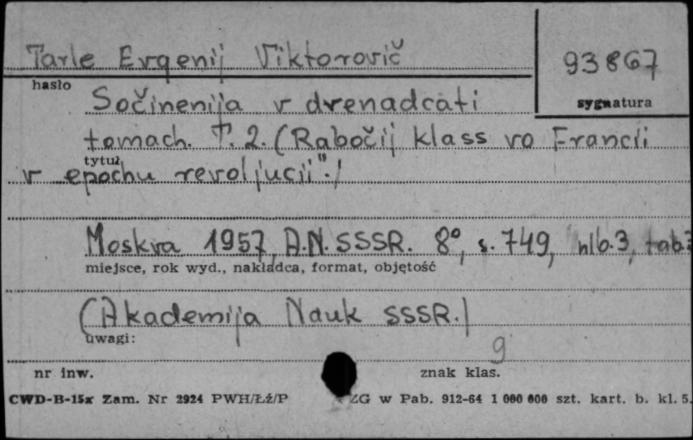 Tarle Evgenij Viktorovič
93867
hasło
sygnatura
Sočinenija v dvenadcati
tomach. T. 2. (Rabočij klass vo Francii
tytuł
v epochu revoljucii"./
Moskva 1957, A.N. SSSR. 8°, s. 749, nlb. 3, tab.
miejsce, rok wyd., nakładca, format, objętość
(Akademija Nauk SSSR.)
uwagi:
9
nr inw.
znak klas.
CWD-B-15x Zam. Nr 2924 PWH/Łź/P ZG w Pab. 912-64 1 000 000 szt. kart. b. kl. 5.